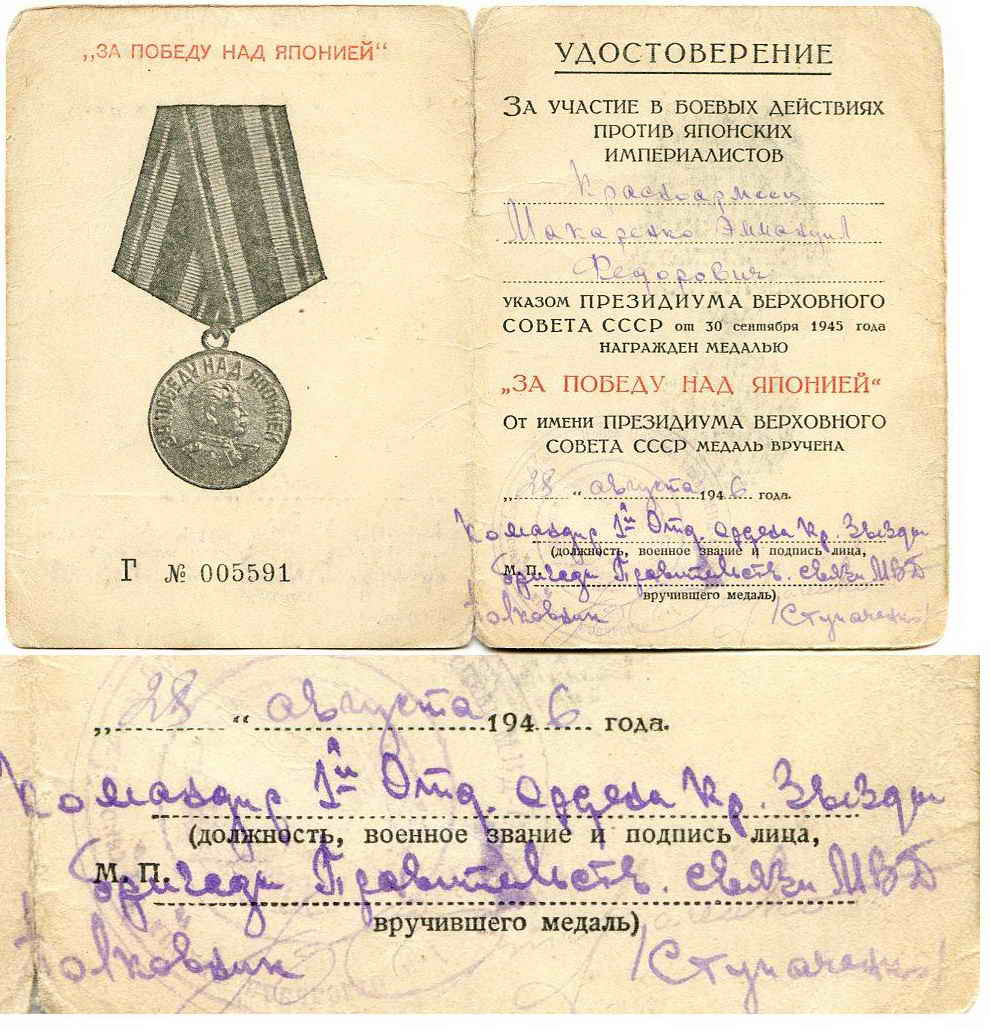 „ЗА ПОБЕДУ НАД ЯПОНИЕЙ“
ЗА ПОБЕДУ НАД ЯПОНИЕЙ
Г № 005591
УДОСТОВЕРЕНИЕ
ЗА УЧАСТИЕ В БОЕВЫХ ДЕЙСТВИЯХ
ПРОТИВ ЯПОНСКИХ
ИМПЕРИАЛИСТОВ
Красноармеец
Макаренко Эммануил
Федорович
УКАЗОМ ПРЕЗИДИУМА ВЕРХОВНОГО
СОВЕТА СССР от 30 сентября 1945 года
НАГРАЖДЕН МЕДАЛЬЮ
„ЗА ПОБЕДУ НАД ЯПОНИЕЙ“
ОТ ИМЕНИ ПРЕЗИДИУМА ВЕРХОВНОГО
СОВЕТА СССР МЕДАЛЬ ВРУЧЕНА
„28“ августа 1946 года.
Командир 1й Отд. ордена Кр. Звезды
(должность, военное звание и подпись лица,
М. П. бригады Правительств. связи МВД
вручившего медаль)
Полковник /Ступаченко/
„28“ августа 1946 года.
Командир 1й Отд. ордена Кр. Звезды
(должность, военное звание и подпись лица,
М. П. бригады Правительств. связи МВД
вручившего медаль)
Полковник /Ступаченко/